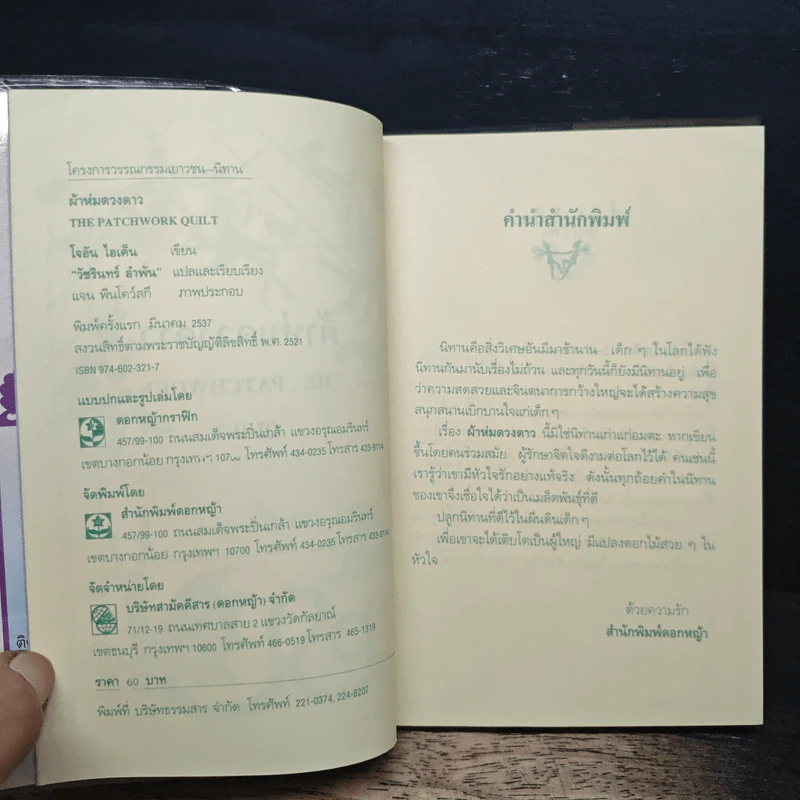 โครงการวรรณกรรมเยาวชน—นิทาน
ผ้าห่มดวงดาว
THE PATCHWORK QUILT
โจอัน ไอเค็น เขียน
"วัชรินทร์ อำพัน" แปลและเรียบเรียง
แจน พีนโคว์สกี ภาพประกอบ
พิมพ์ครั้งแรก มีนาคม 2537
สงวนสิทธิ์ตามพระราชบัญญัติลิขสิทธิ์ พ.ศ. 2521
ISBN 974-602-321-7
แบบปกและรูปเล่มโดย
ดอกหญ้ากราฟิก
457/99-100 ถนนสมเด็จพระปิ่นเกล้า แขวงอรุณอมรินทร์
เขตบางกอกน้อย กรุงเทพฯ 10700 โทรศัพท์ 434-0235 โทรสาร 433-9114
จัดพิมพ์โดย
สำนักพิมพ์ดอกหญ้า
457/99-100 ถนนสมเด็จพระปิ่นเกล้า แขวงอรุณอมรินทร์
เขตบางกอกน้อย กรุงเทพฯ 10700 โทรศัพท์ 434-0235 โทรสาร 433-9114
จัดจำหน่ายโดย
บริษัทสามัคคีสาร (ดอกหญ้า) จำกัด
71/12-19 ถนนเทศบาลสาย 2 แขวงวัดกัลยาณ์
เขตธนบุรี กรุงเทพฯ 10600 โทรศัพท์ 466-0519 โทรสาร 465-1319
ราคา 60 บาท
พิมพ์ที่ บริษัทธรรมสาร จำกัด โทรศัพท์ 221-0374, 224-8207
คำนำสำนักพิมพ์
นิทานคือสิ่งวิเศษอันมีมาช้านาน เด็ก ๆ ในโลกได้ฟัง
นิทานกันมานับเรื่องไม่ถ้วน และทุกวันนี้ก็ยังมีนิทานอยู่ เพื่อ
ว่าความสดสวยและจินตนาการกว้างใหญ่จะได้สร้างความสุข
สนุกสนานเบิกบานใจแก่เด็กๆ
เรื่อง ผ้าห่มดวงดาว นี้มิใช่นิทานเก่าแก่อมตะ หากเขียน
ขึ้นโดยคนร่วมสมัย ผู้รักษาจิตใจดีงามต่อโลกไว้ได้ คนเช่นนี้
เรารู้ว่าเขามีหัวใจรักอย่างแท้จริง ดังนั้นทุกถ้อยคำในนิทาน
ของเขาจึงเชื่อใจได้ว่าเป็นเมล็ดพันธุ์ที่ดี
ปลูกนิทานที่ดีไว้ในผืนดินเด็กๆ
เพื่อเขาจะได้เติบโตเป็นผู้ใหญ่ มีแปลงดอกไม้สวย ๆ ใน
หัวใจ
ด้วยความรัก
สำนักพิมพ์ดอกหญ้า